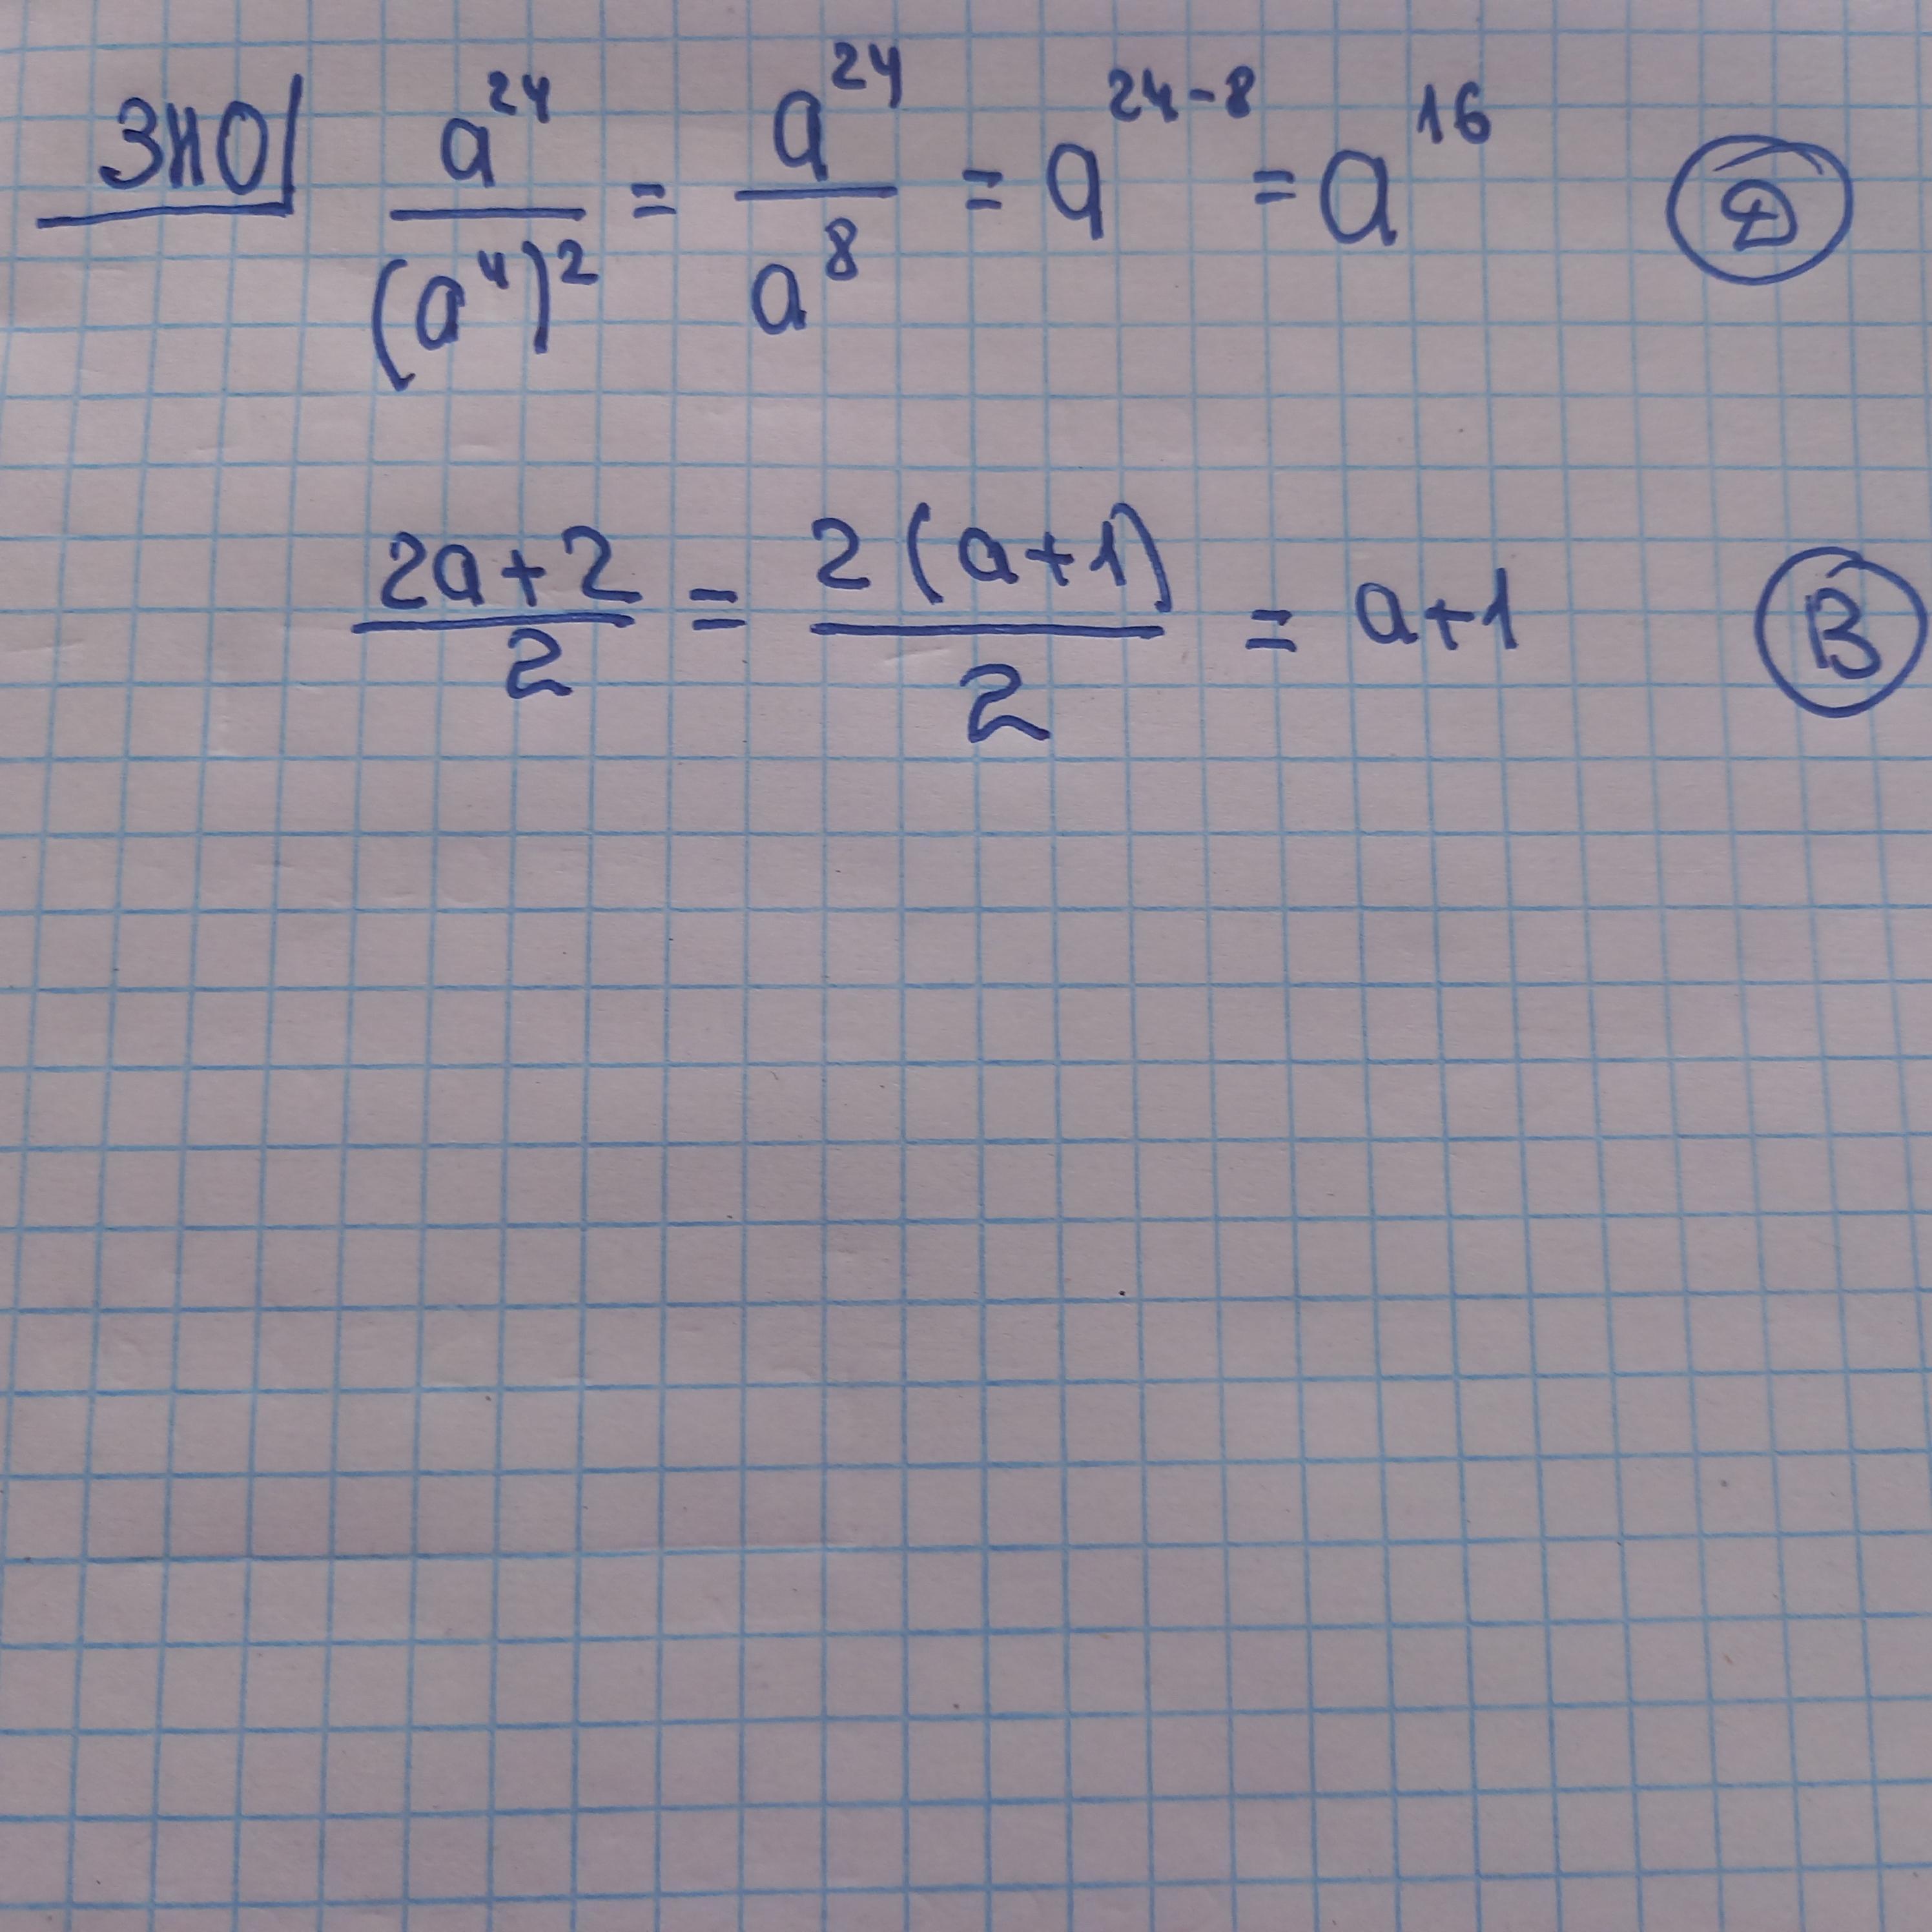 ЗНО a^24/(a^4)^2 = a^24/a^8 = a^24-8 = a^16 Д
2a+2/2 = 2(a+1)/2 = a+1 В